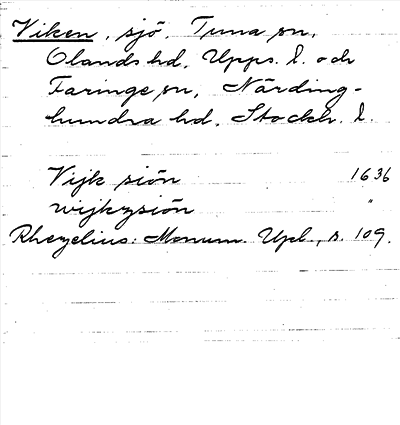 Viken, sjö, Tuna sn,
Olands hd, Upps. l. och
Faringe sn, Närding-
hundra hd, Stockh. l.
Vijk siön 1636
wijkzsiön "
Rhezelius: Monum. Upl., s. 109.